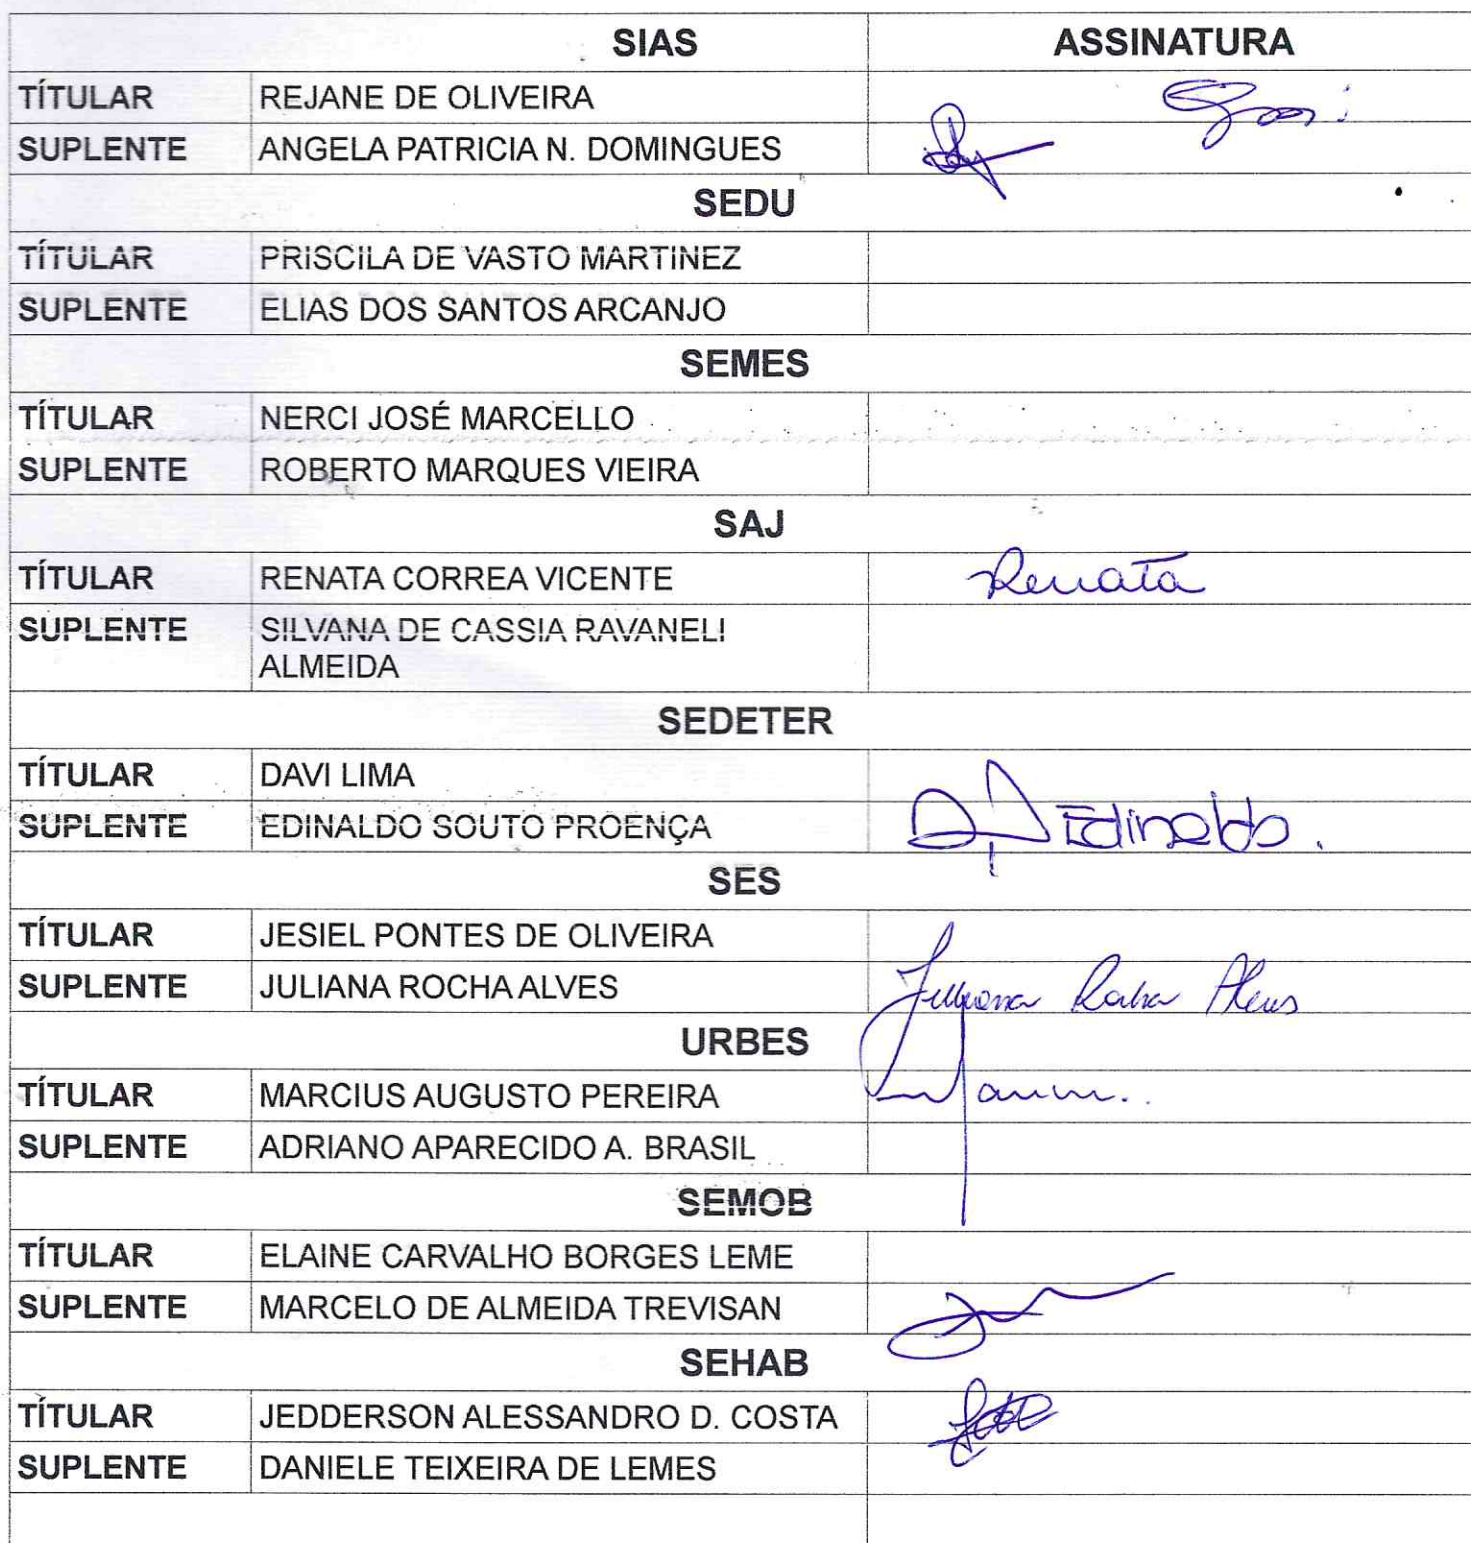 SIAS ASSINATURA
TÍTULAR REJANE DE OLIVEIRA
SUPLENTE ANGELA PATRICIA N. DOMINGUES
SEDU
TÍTULAR PRISCILA DE VASTO MARTINEZ
SUPLENTE ELIAS DOS SANTOS ARCANJO
SEMES
TÍTULAR NERCI JOSÉ MARCELLO
SUPLENTE ROBERTO MARQUES VIEIRA
SAJ
TÍTULAR RENATA CORREA VICENTE Renata
SUPLENTE SILVANA DE CASSIA RAVANELI
ALMEIDA
SEDETER
TÍTULAR DAVI LIMA
SUPLENTE EDINALDO SOUTO PROENÇA Edinaldo.
SES
TÍTULAR JESIEL PONTES DE OLIVEIRA
SUPLENTE JULIANA ROCHA ALVES Juliana Rocha Alves
URBES
TÍTULAR MARCIUS AUGUSTO PEREIRA
SUPLENTE ADRIANO APARECIDO A. BRASIL
SEMOB
TÍTULAR ELAINE CARVALHO BORGES LEME
SUPLENTE MARCELO DE ALMEIDA TREVISAN
SEHAB
TÍTULAR JEDDERSON ALESSANDRO D. COSTA
SUPLENTE DANIELE TEIXEIRA DE LEMES